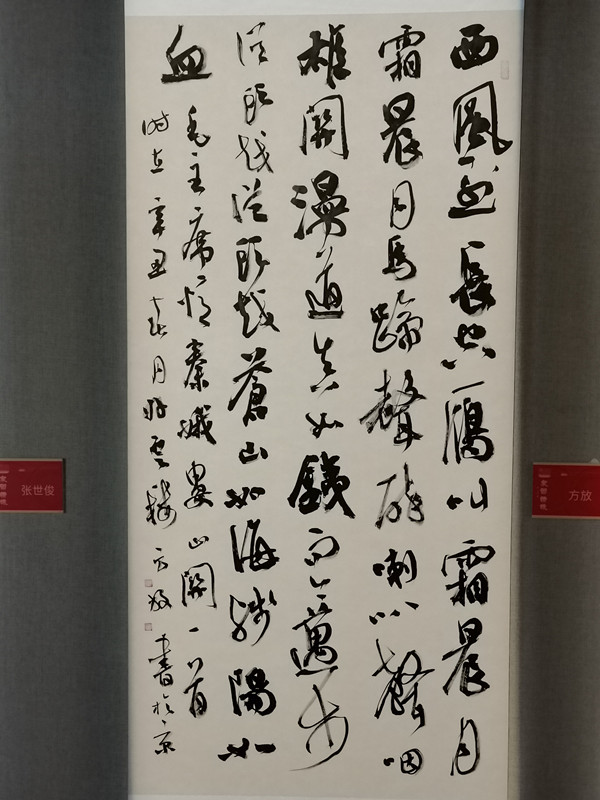 西風烈長空鴈叫霜晨月
霜晨月馬蹄聲碎喇叭聲咽
雄關漫道真如鐵而今邁步
從頭越從頭越蒼山如海殘陽如
血
毛主席憶秦娥婁山關一首
时在辛丑春月 方放書於京
张世俊
方放